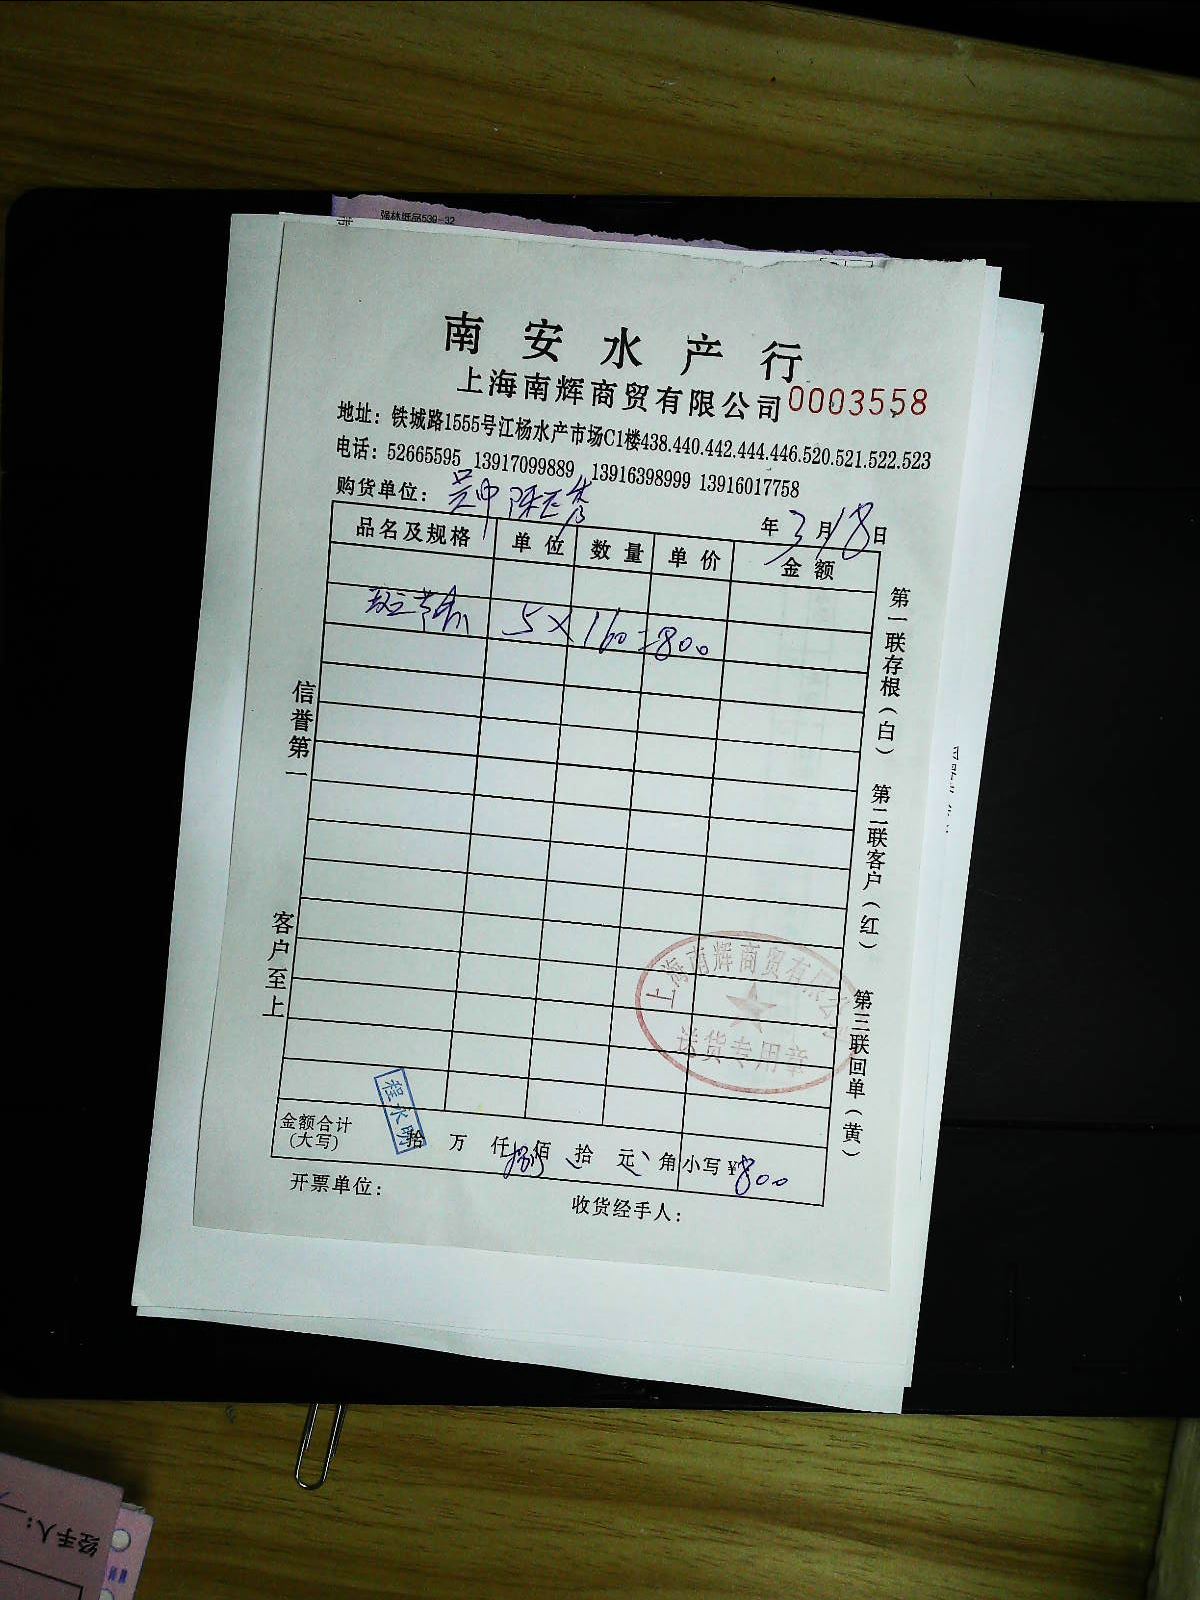 强林纸品539-32
南安水产行
上海南辉商贸有限公司 0003558
地址：铁城路1555号江杨水产市场C1楼438.440.442.444.446.520.521.522.523
电话：52665595 13917099889 13916398999 13916017758
购货单位：吴中
年3月18日
品名及规格 单位 数量 单价 金额
斑节虾 5×160=800
信誉第一
客户至上
第一联存根（白） 第二联客户（红） 第三联回单（黄）
上海南辉商贸有限公
送货专用章
程水明
金额合计（大写） 拾 万 仟 捌 佰 拾 元 角 小写¥800
开票单位：
收货经手人：
经手人：